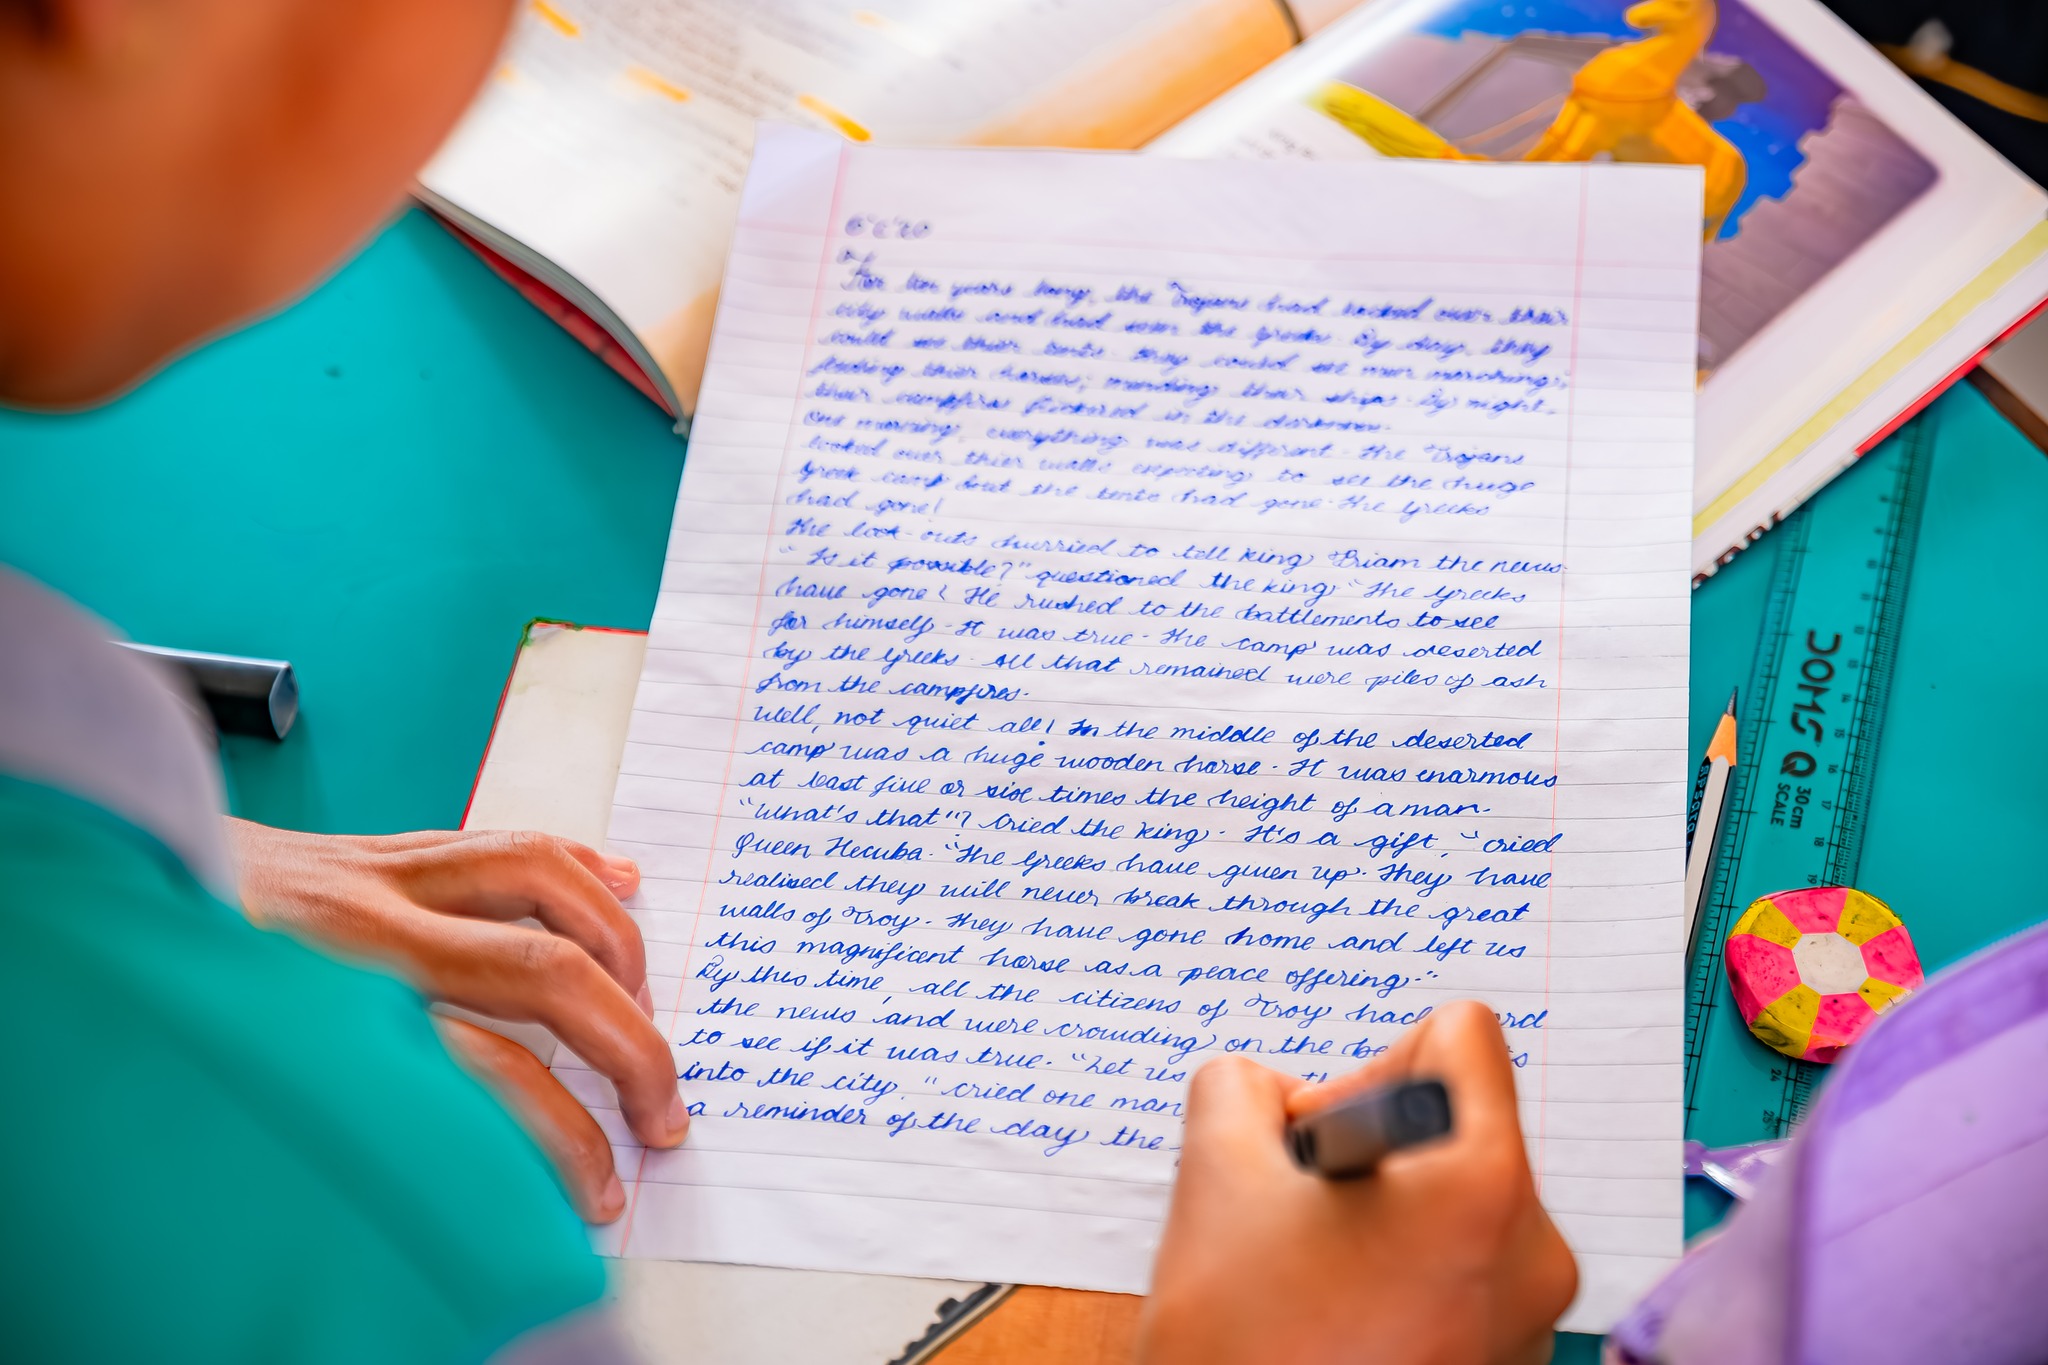 For ten years long, the Trojans had looked over their
city walls and had seen the Greeks. By day, they
could see thier tents. they could see men marching;
feeding thier horses; mending their ships. By night.
their campfires flickered in the darkness.
One morning, everything was different. The Trojans
looked over thier walls expecting to see the huge
Greek camp but the tents had gone. The Greeks
had gone!
The look-outs hurried to tell king Priam the news.
"Is it possible?" questioned the king "The Greeks
have gone! He rushed to the battlements to see
for himself. It was true. The camp was deserted
by the Greeks. All that remained were piles of ash
from the campfires.
Well, not quiet all! In the middle of the deserted
camp was a huge wooden horse. It was enarmous
at least five or six times the height of a man.
"What's that"? Cried the King. It's a gift," cried
Queen Hecuba. "The Greeks have given up. They have
realised they will never break through the great
walls of Troy. They have gone home and left us
this magnificent horse as a peace offering."
By this time, all the citizens of Troy had
the news and were crowding on the
to see if it was true. "Let us
into the city." cried one man
a reminder of the day the
DOMS Q 30cm
SCALE